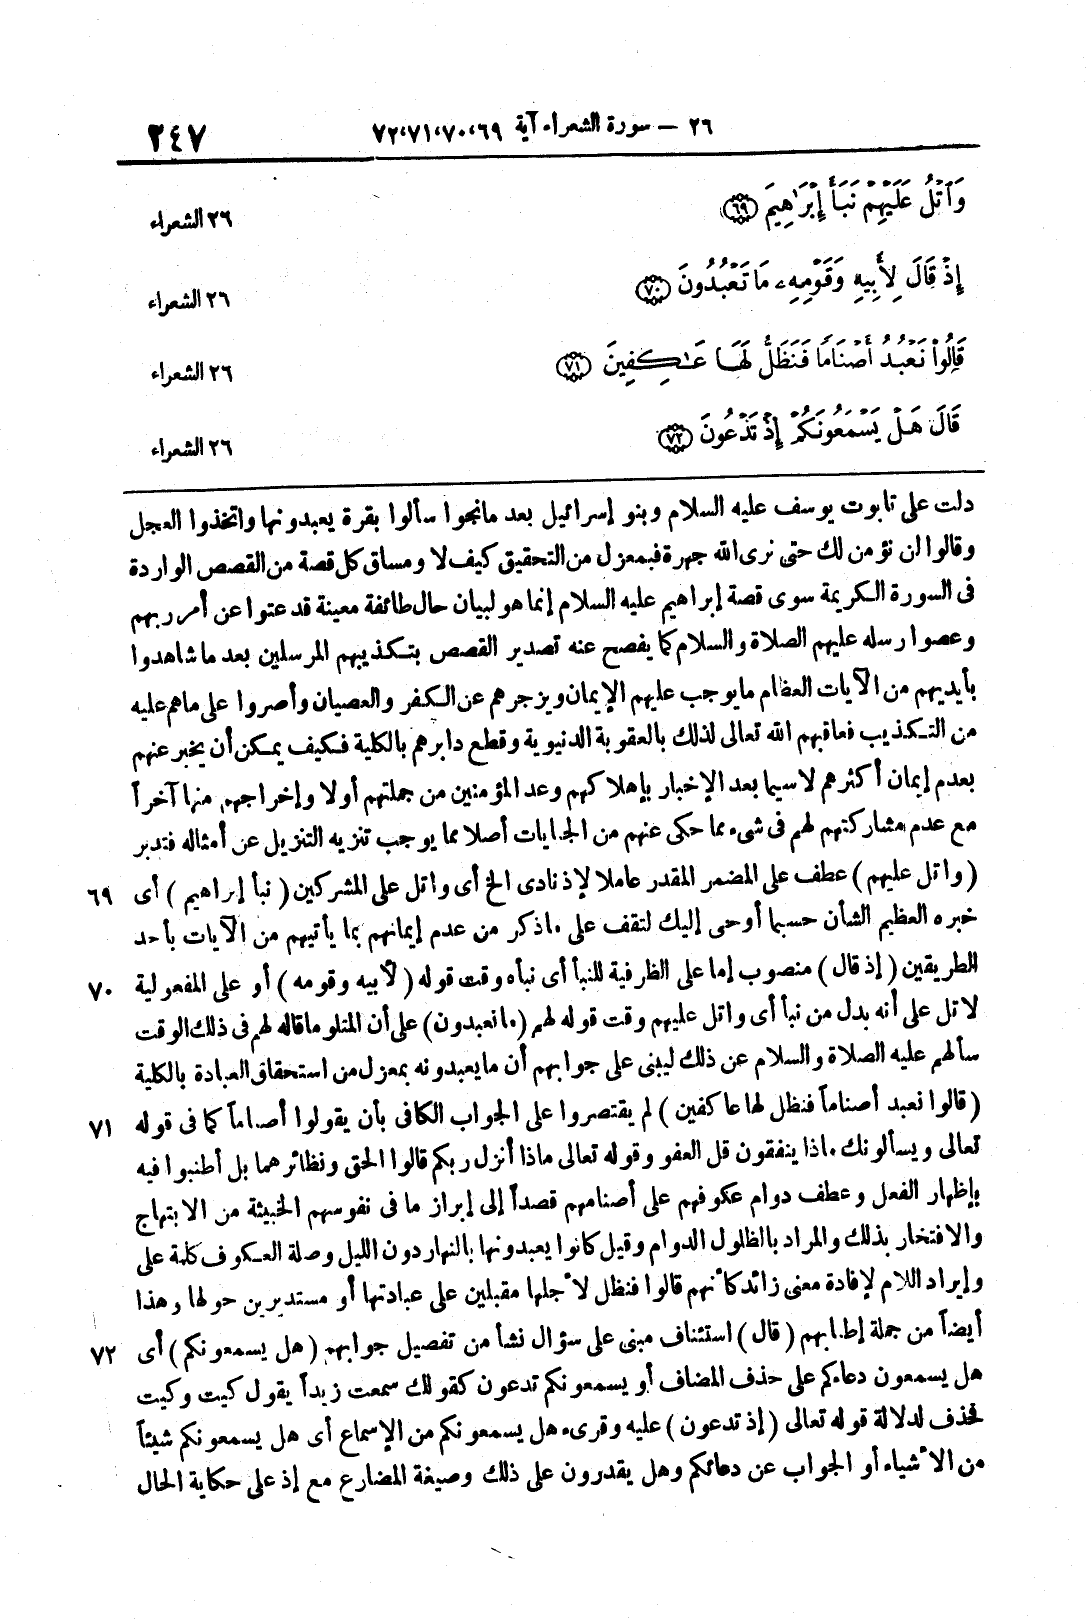 ٢٦ – سورة الشعراء آية ٦٩،٧٠،٧١،٧٢
٢٤٧
وَٱتْلُ عَلَيْهِمْ نَبَأَ إِبْرَٰهِيمَ ﴿٦٩﴾
٢٦ الشعراء
إِذْ قَالَ لِأَبِيهِ وَقَوْمِهِۦ مَا تَعْبُدُونَ ﴿٧٠﴾
٢٦ الشعراء
قَالُوا۟ نَعْبُدُ أَصْنَامًا فَنَظَلُّ لَهَا عَـٰكِفِينَ ﴿٧١﴾
٢٦ الشعراء
قَالَ هَلْ يَسْمَعُونَكُمْ إِذْ تَدْعُونَ ﴿٧٢﴾
٢٦ الشعراء
دلت على تابوت يوسف عليه السلام وبنو إسرائيل بعد مانجوا سألوا بقرة يعبدونها واتخذوا العجل
وقالوا لن نؤمن لك حتى نرى الله جهرة فبمعزل من التحقيق كيف لا ومساق كل قصة من القصص الواردة
فى السورة الكريمة سوى قصة إبراهيم عليه السلام إنما هو لبيان حال طائفة معينة قد عتوا عن أمر ربهم
وعصوا رسله عليهم الصلاة والسلام كما يفصح عنه تصدير القصص بتكذيبهم المرسلين بعد ما شاهدوا
بأيديهم من الآيات العظام مايوجب عليهم الإيمان ويزجرهم عن الكفر والعصيان وأصروا على ماهم عليه
من التكذيب فعاقبهم الله تعالى لذلك بالعقوبة الدنيوية وقطع دابرهم بالكلية فكيف يمكن أن يخبر عنهم
بعدم إيمان أكثرهم لاسيما بعد الإخبار بإهلاكهم وعد المؤمنين من جملتهم أولا وإخراجهم منها آخراً
مع عدم مشاركتهم لهم فى شىء مما حكى عنهم من الجنايات أصلا مما يوجب تنزيه التنزيل عن أمثاله فتدبر
(واتل عليهم) عطف على المضمر المقدر عاملا لإذ نادى الخ أى واتل على المشركين (نبأ إبراهيم) أى ٦٩
خبره العظيم الشأن حسبما أوحى إليك لتقف على ماذكر من عدم إيمانهم بما يأتيهم من الآيات بأحد
الطريقين (إذ قال) منصوب إما على الظرفية للنبأ أى نبأه وقت قوله (لأبيه وقومه) أو على المفعولية ٧٠
لاتل على أنه بدل من نبأ أى واتل عليهم وقت قوله لهم (ماتعبدون) على أن المتلو ماقاله لهم فى ذلك الوقت
سألهم عليه الصلاة والسلام عن ذلك ليبنى على جوابهم أن مايعبدونه بمعزل من استحقاق العبادة بالكلية
(قالوا نعبد أصناماً فنظل لها عاكفين) لم يقتصروا على الجواب الكافى بأن يقولوا أصناماً كما فى قوله ٧١
تعالى ويسألونك ماذا ينفقون قل العفو وقوله تعالى ماذا أنزل ربكم قالوا الحق ونظائرهما بل أطنبوا فيه
بإظهار الفعل وعطف دوام عكوفهم على أصنامهم قصداً إلى إبراز ما فى نفوسهم الخبيثة من الابتهاج
والافتخار بذلك والمراد بالظلول الدوام وقيل كانوا يعبدونها بالنهار دون الليل وصلة العكوف كلمة على
وإيراد اللام لإفادة معنى زائد كأنهم قالوا فنظل لأجلها مقبلين على عبادتها أو مستديرين حولها وهذا
أيضاً من جملة إطنابهم (قال) استئناف مبنى على سؤال نشأ من تفصيل جوابهم (هل يسمعونكم) أى ٧٢
هل يسمعون دعاءكم على حذف المضاف أو يسمعونكم تدعون كقولك سمعت زيداً يقول كيت وكيت
فحذف لدلالة قوله تعالى (إذ تدعون) عليه وقرىء هل يسمعونكم من الإسماع أى هل يسمعونكم شيئاً
من الأشياء أو الجواب عن دعائكم وهل يقدرون على ذلك وصيغة المضارع مع إذ على حكاية الحال